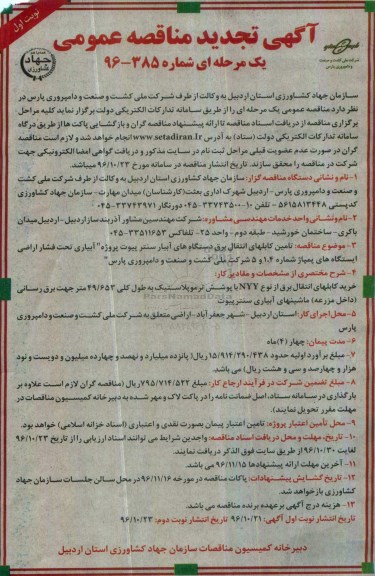 نوبت اول
آگهی تجدید مناقصه عمومی
یک مرحله ای شماره ۳۸۵-۹۶
جهاد کشاورزی
سازمان جهاد کشاورزی استان اردبیل به وکالت از طرف شرکت ملی کشت و صنعت و دامپروری پارس در
نظر دارد مناقصه عمومی یک مرحله ای را از طریق سامانه تدارکات الکترونیکی دولت برگزار نماید کلیه مراحل
برگزاری مناقصه از دریافت اسناد مناقصه تا ارائه پیشنهاد مناقصه گران و بازگشایی پاکت ها از طریق درگاه
سامانه تدارکات الکترونیکی دولت (ستاد) به آدرس www.setadiran.ir انجام خواهد شد و لازم است مناقصه
گران در صورت عدم عضویت قبلی مراحل ثبت نام در سایت مذکور و دریافت گواهی امضا الکترونیکی جهت
شرکت در مناقصه را محقق سازند. تاریخ انتشار مناقصه در سامانه مورخ ۹۶/۱۰/۲۳ میباشد
۱- نام و نشانی دستگاه مناقصه گزار: سازمان جهاد کشاورزی استان اردبیل به وکالت از طرف شرکت ملی کشت
و صنعت و دامپروری پارس- اردبیل شهرک اداری بعثت(کارشناسان) میدان مهارت- سازمان جهاد کشاورزی
کدپستی ۵۶۱۵۸۱۳۴۴۸ - تلفن ۱۰-۳۳۷۴۳۵۰۰-۰۴۵ دورنگار ۳۳۷۴۳۹۷۱-۰۴۵
۲- نام و نشانی واحد خدمات مهندسی مشاوره: شرکت مهندسین مشاور آذربند ساز اردبیل- اردبیل میدان
باکری- ساختمان خورشید- طبقه دوم- واحد ۲۵- تلفاکس ۳۳۵۱۱۶۵۳-۰۴۵
۳- موضوع مناقصه: تامین کابلهای انتقال برق دستگاه های آبیار سنتر پیوت پروژه" آبیاری تحت فشار اراضی
ایستگاه های پمپاژ شماره ۱،۴ و ۵ شرکت ملی کشت و صنعت و دامپروری پارس"
۴- شرح مختصری از مشخصات و مقادیر کار:
خرید کابلهای انتقال برق از نوع NYY با پوشش ترموپلاستیک به طول کلی ۴۹/۶۵۳ متر جهت برق رسانی
(داخل مزرعه) ماشینهای آبیاری سنتر پیوت
۵- محل اجرای کار: استان اردبیل -شهر جعفر آباد -اراضی متعلق به شرکت ملی کشت و صنعت و دامپروری
پارس
۶- مدت پیمان: چهار (۴)ماه
۷- مبلغ برآورد اولیه حدود ۱۵/۹۱۴/۲۹۰/۴۳۸ ریال( پانزده میلیارد و نهصد و چهارده میلیون و دویست و نود
هزار و چهارصد و سی و هشت ریال) می باشد.
۸- مبلغ تضمین شرکت در فرآیند ارجاع کار: مبلغ ۷۹۵/۷۱۴/۵۲۲ ریال (مناقصه گران لازم است علاوه بر
بارگذاری در سامانه ستاد، اصل ضمانت نامه را در پاکت لاک و مهر شده به دبیرخانه کمیسیون مناقصات در
مهلت مقرر تحویل نمایند).
۹- محل تأمین اعتبار پروژه: تامین اعتبار پیمان بصورت نقدی و اعتباری (اسناد خزانه اسلامی) خواهد بود.
۱۰- تاریخ، مهلت و محل دریافت اسناد مناقصه: واجدین شرایط می توانند اسناد ارزیابی را از تاریخ ۹۶/۱۰/۲۳
لغایت ۹۶/۱۰/۳۰ از طریق سایت فوق الذکر دریافت نمایند.
۱۱- آخرین مهلت ارائه پیشنهادها ۹۶/۱۱/۱۵ می باشد.
۱۲- تاریخ گشایش پیشنهادات: پاکات مناقصه در مورخه ۹۶/۱۱/۱۶ در محل سالن جلسات سازمان جهاد
کشاورزی باز خواهد شد.
۱۳- هزینه درج آگهی بر عهده برنده مناقصه می باشد.
تاریخ انتشار نوبت اول آگهی: ۹۶/۱۰/۲۱ تاریخ انتشار نوبت دوم: ۹۶/۱۰/۲۳
دبیرخانه کمیسیون مناقصات سازمان جهاد کشاورزی استان اردبیل